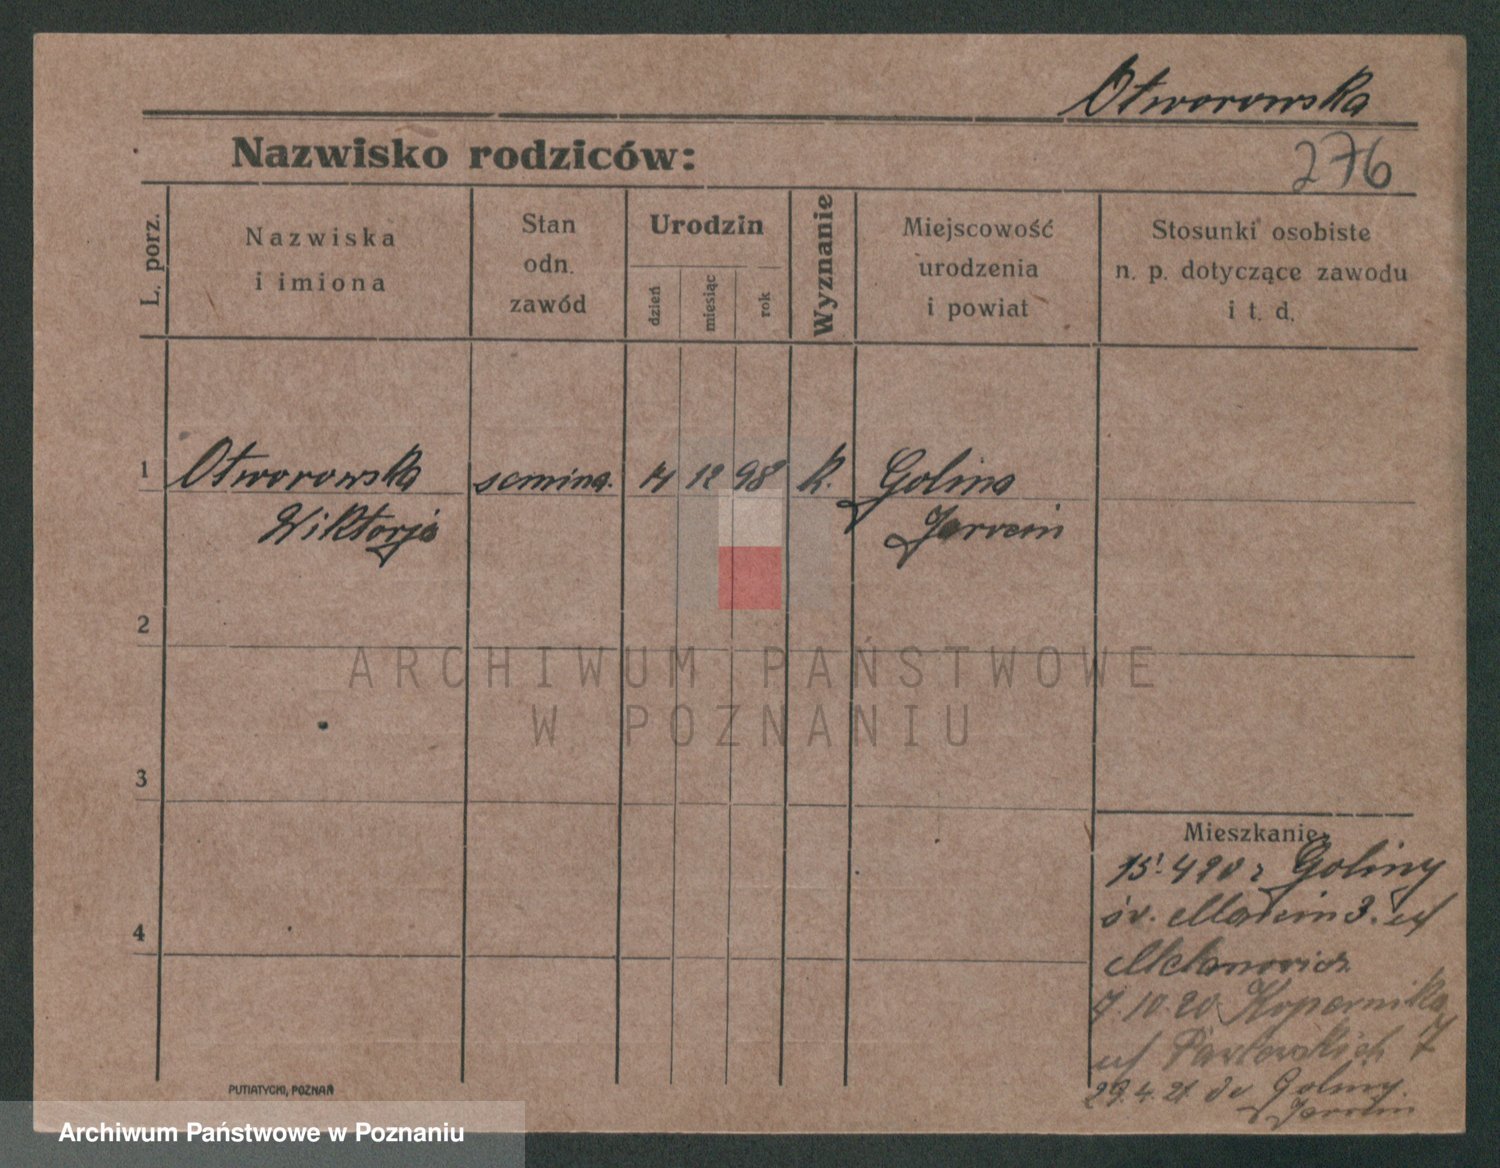 Otworowska
Nazwisko rodziców:
276
L. porz.
Nazwiska
i imiona
Stan
odn.
zawód
Urodzin
dzień
miesiąc
rok
Wyznanie
Miejscowość
urodzenia
i powiat
Stosunki osobiste
n. p. dotyczące zawodu
i t. d.
1 Otworowska semina. 14 12 98 k. Golina
Wiktorja Jarocin
2
ARCHIWUM PAŃSTWOWE
W POZNANIU
3
Mieszkanie
15. 4 20 z Goliny
św. Marcin 3.
4
7.10.20 Kopernika
7
29.4.21 do Goliny
Jarocin
PUTIATYCKI, POZNAŃ
Archiwum Państwowe w Poznaniu